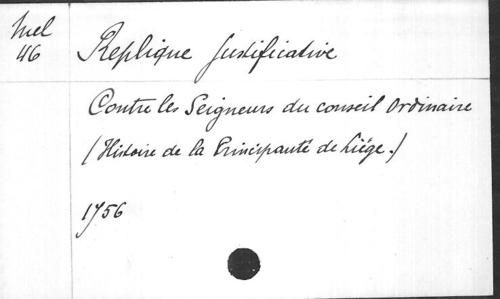 Mel
46
Replique Justificative
Contre les Seigneurs du conseil Ordinaire
(Histoire de la Principauté de Liége.)
1756